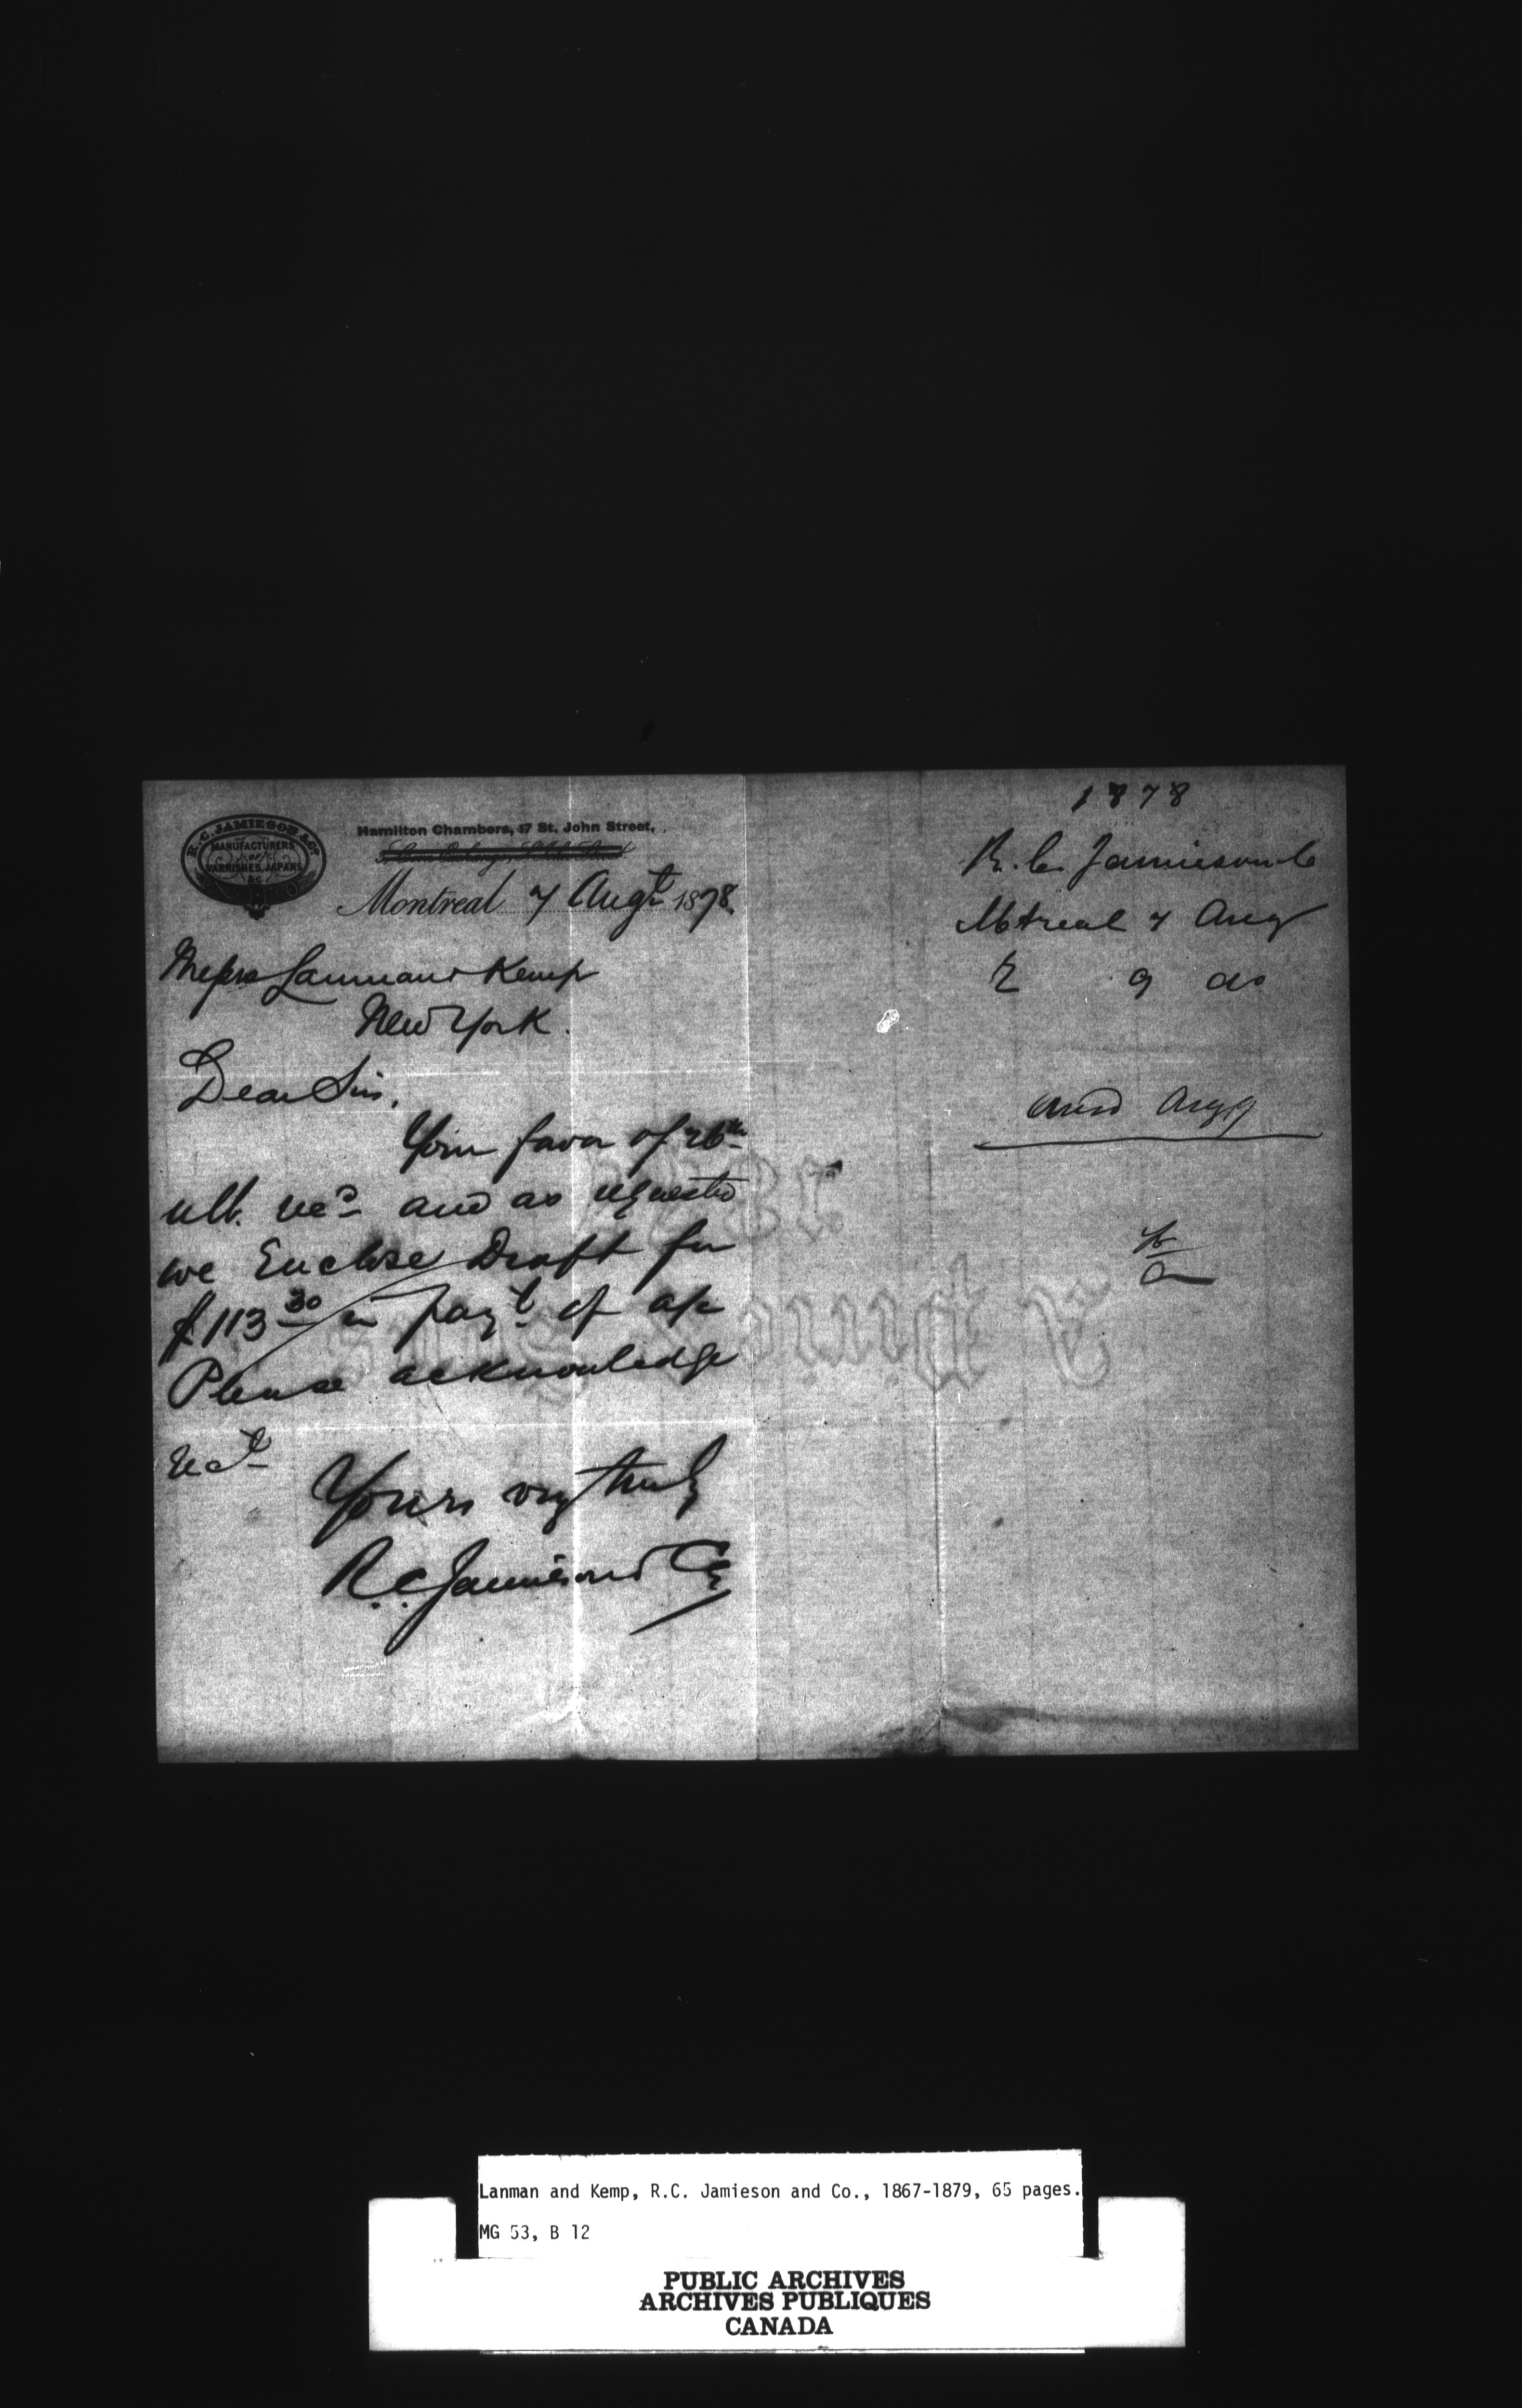 R. C. JAMIESON & Co
MANUFACTURERS
OF
VARNISHES, JAPANS
&c
Hamilton Chambers, 17 St. John Street,
Montreal 7 Augt 1878.
Messrs Lanman & Kemp
New York.
Dear Sirs,
Your favor of 26th
ult. recd and as requested
we Enclose Draft for
$113 30 in payt of a/c
Please acknowledge
rect
Yours very truly
R. C. Jamieson & Co
1878
R. C. Jamieson & Co
Mtreal 7 Aug
R 9 do
Ansd Aug 9
Lanman and Kemp, R.C. Jamieson and Co., 1867-1879, 65 pages.
MG 53, B 12
PUBLIC ARCHIVES
ARCHIVES PUBLIQUES
CANADA